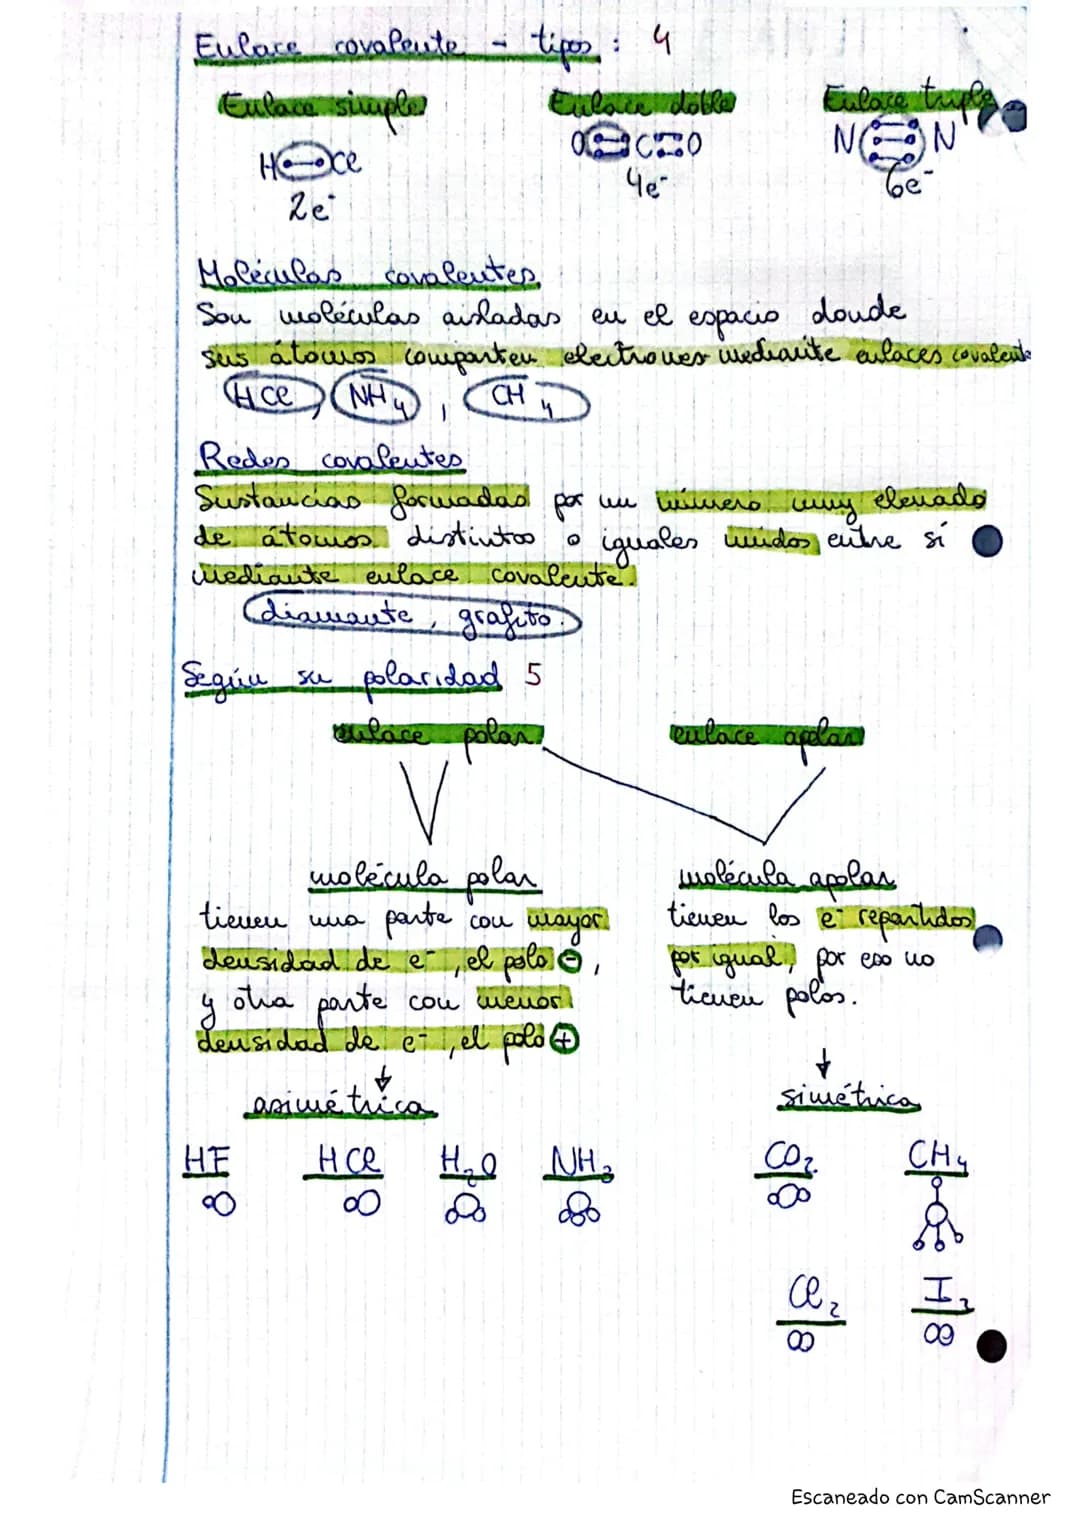 Enlace covalente - tipos: 4
Enlace simple Enlace doble Enlace triple
H Cl O C O N N
2e⁻ 4e⁻ 6e⁻
Moléculas covalentes
Son moléculas aisladas en el espacio donde
sus átomos comparten electrones mediante enlaces covalente
HCl, NH4, CH4
Redes covalentes
Sustancias formadas por un número muy elevado
de átomos distintos o iguales unidos entre sí
mediante enlace covalente.
diamante, grafito.
Según su polaridad 5
enlace polar enlace apolar
molécula polar
tienen una parte con mayor
densidad de e⁻, el polo ⊖,
y otra parte con menor
densidad de e⁻, el polo ⊕
asimétrica
HF HCl H2O NH3
molécula apolar
tienen los e⁻ repartidos
por igual, por eso no
tienen polos.
simétrica
CO2 CH4
Cl2 I2
Escaneado con CamScanner